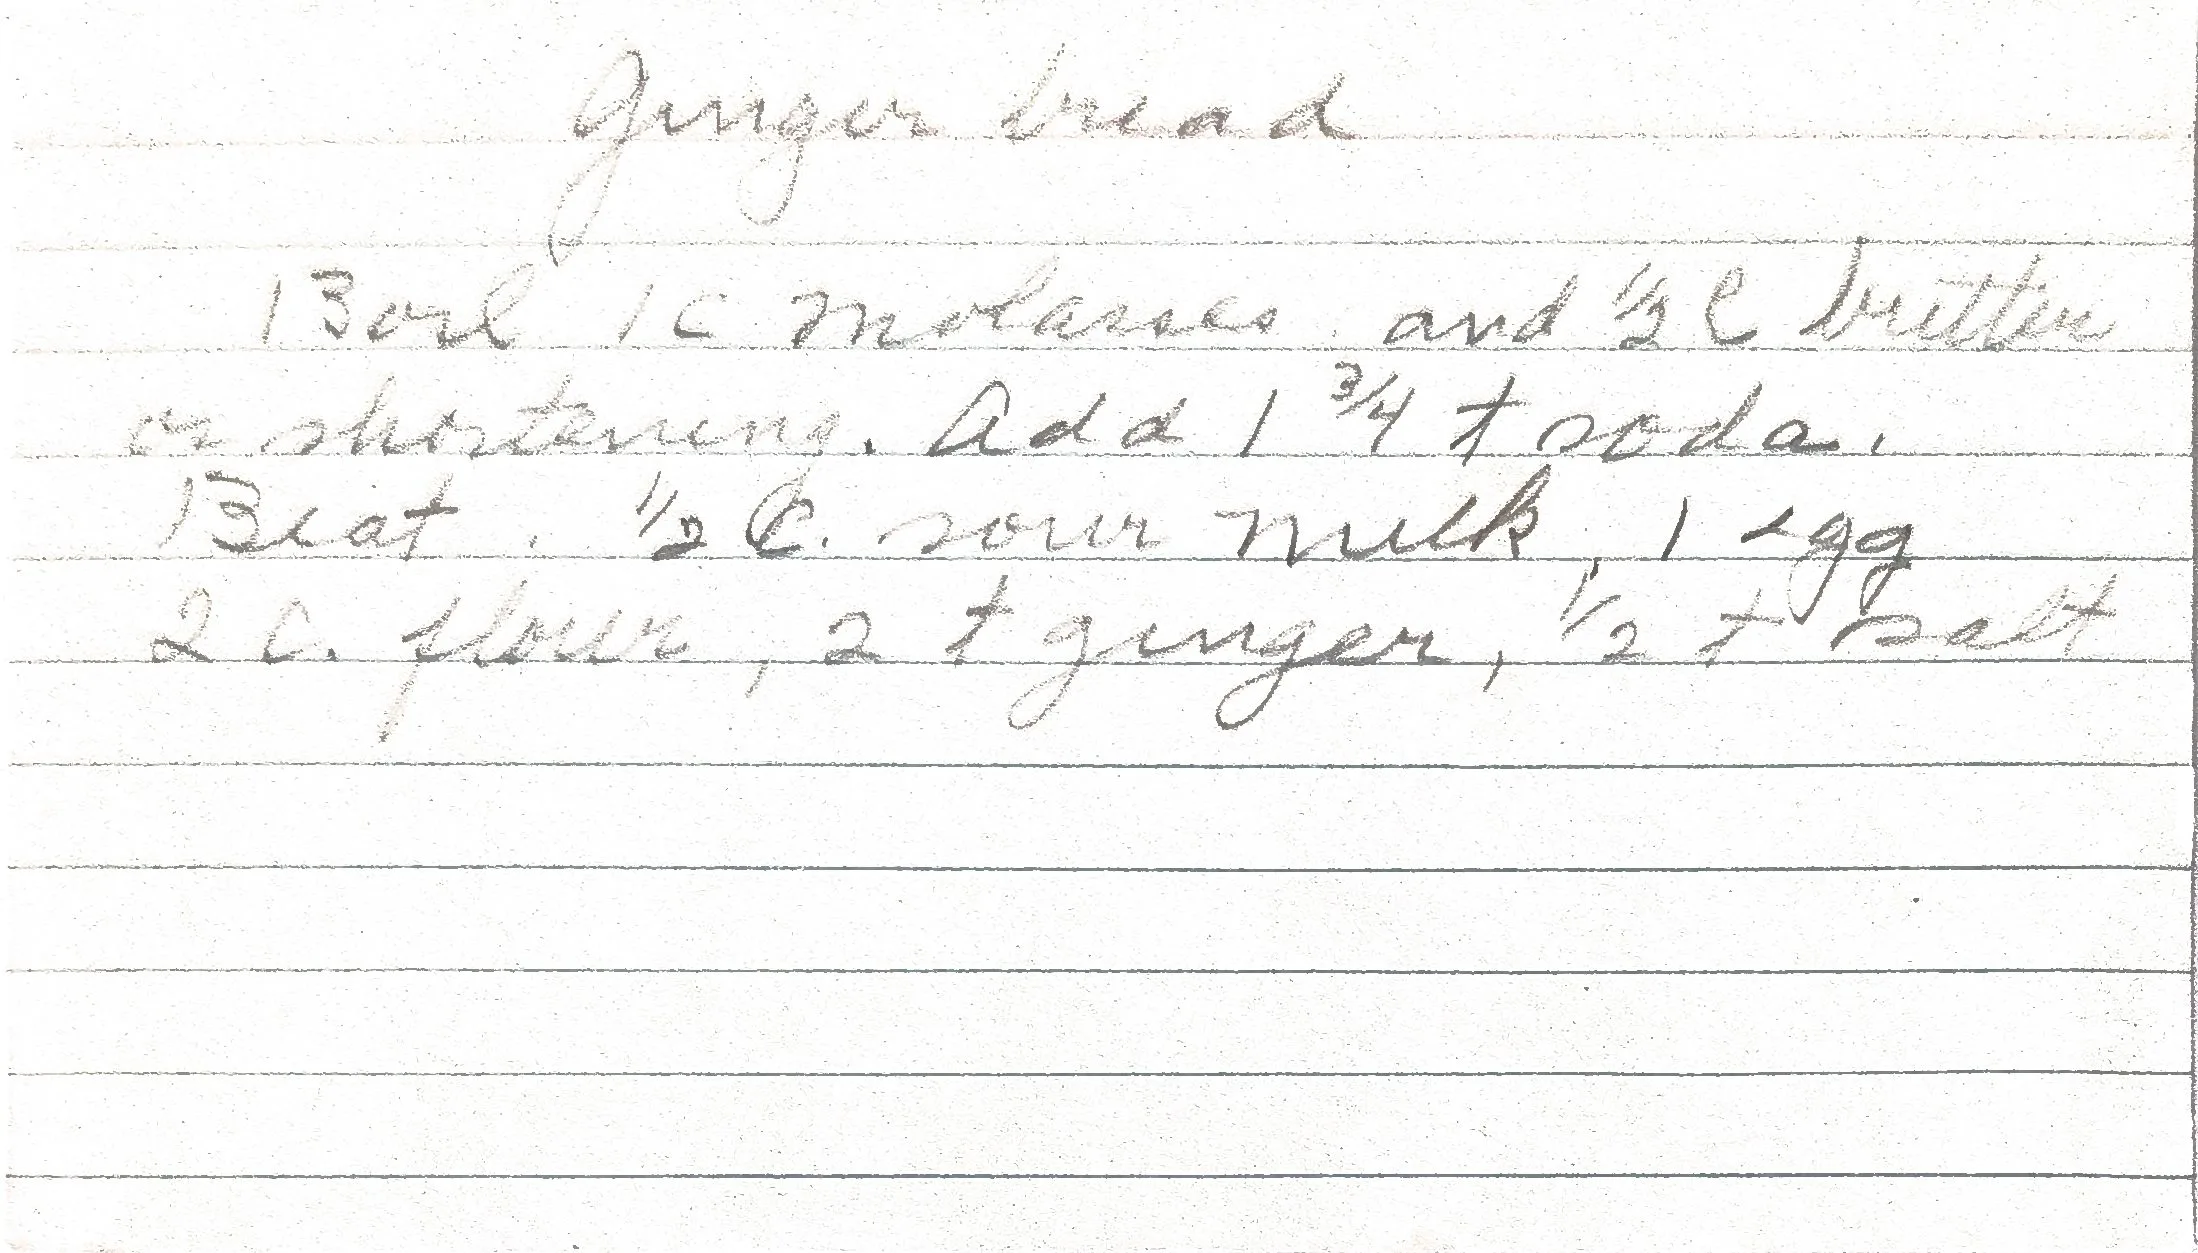 Ginger bread
Boil 1 c molasses and 1/2 C butter
or shortening. Add 1 3/4 t soda.
Beat. 1/2 C. sour milk, 1 egg
2 c. flour, 2 t ginger, 1/2 t salt